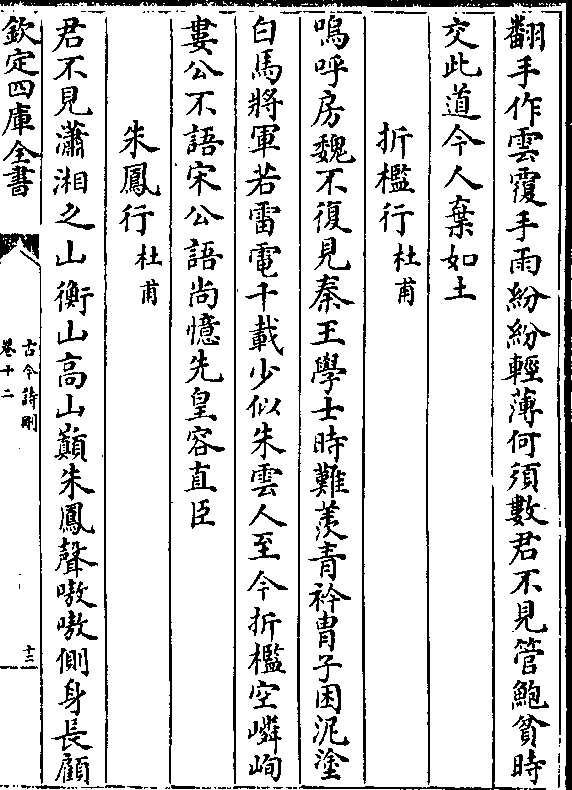 翻手作雲覆手雨紛紛輕薄何須數君不見管鮑貧時
交此道今人棄如土
折檻行杜甫
嗚呼房魏不復見秦王學士時難羨青衿胄子困泥塗
白馬將軍若雷電千載少似朱雲人至今折檻空嶙峋
婁公不語宋公語尚憶先皇容直臣
朱鳳行杜甫
君不見瀟湘之山衡山高山巔朱鳳聲嗷嗷側身長顧
欽定四庫全書
古今詩刪
卷十二
十三